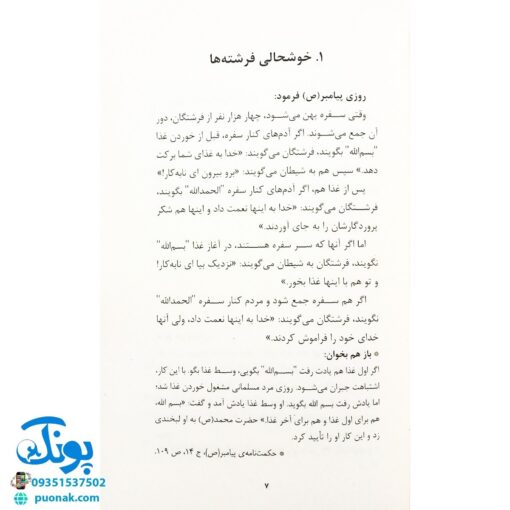 ۱. خوشحالی فرشته‌ها
روزی پیامبر(ص) فرمود:
وقتی سفره پهن می‌شود، چهار هزار نفر از فرشتگان، دور
آن جمع می‌شوند. اگر آدم‌های کنار سفره، قبل از خوردن غذا
"بسم‌الله" بگویند، فرشتگان می‌گویند: «خدا به غذای شما برکت
دهد.» سپس هم به شیطان می‌گویند: «برو بیرون ای نابه‌کار!»
پس از غذا هم، اگر آدم‌های کنار سفره "الحمدالله" بگویند،
فرشتگان می‌گویند: «خدا به اینها نعمت داد و اینها هم شکر
پروردگارشان را به جای آوردند.»
اما اگر آنها که سر سفره هستند، در آغاز غذا "بسم‌الله"
نگویند، فرشتگان به شیطان می‌گویند: «نزدیک بیا ای نابه‌کار!
و تو هم با اینها غذا بخور.»
اگر هم سفره جمع شود و مردم کنار سفره "الحمدالله"
نگویند، فرشتگان می‌گویند: «خدا به اینها نعمت داد، ولی آنها
خدای خود را فراموش کردند.»
* باز هم بخوان:
اگر اول غذا هم یادت رفت "بسم‌الله" بگویی، وسط غذا بگو. با این کار،
اشتباهت جبران می‌شود. روزی مرد مسلمانی مشغول خوردن غذا شد؛
اما یادش رفت بسم الله بگوید. او وسط غذا یادش آمد و گفت: «بسم الله،
هم برای اول غذا و هم برای آخر غذا.» حضرت محمد(ص) به او لبخندی
زد و این کار او را تأیید کرد.
* حکمت‌نامه‌ی پیامبر(ص)، ج ۱۴، ص ۱۰۹.
۷
پونک
09351537502
puonak.com